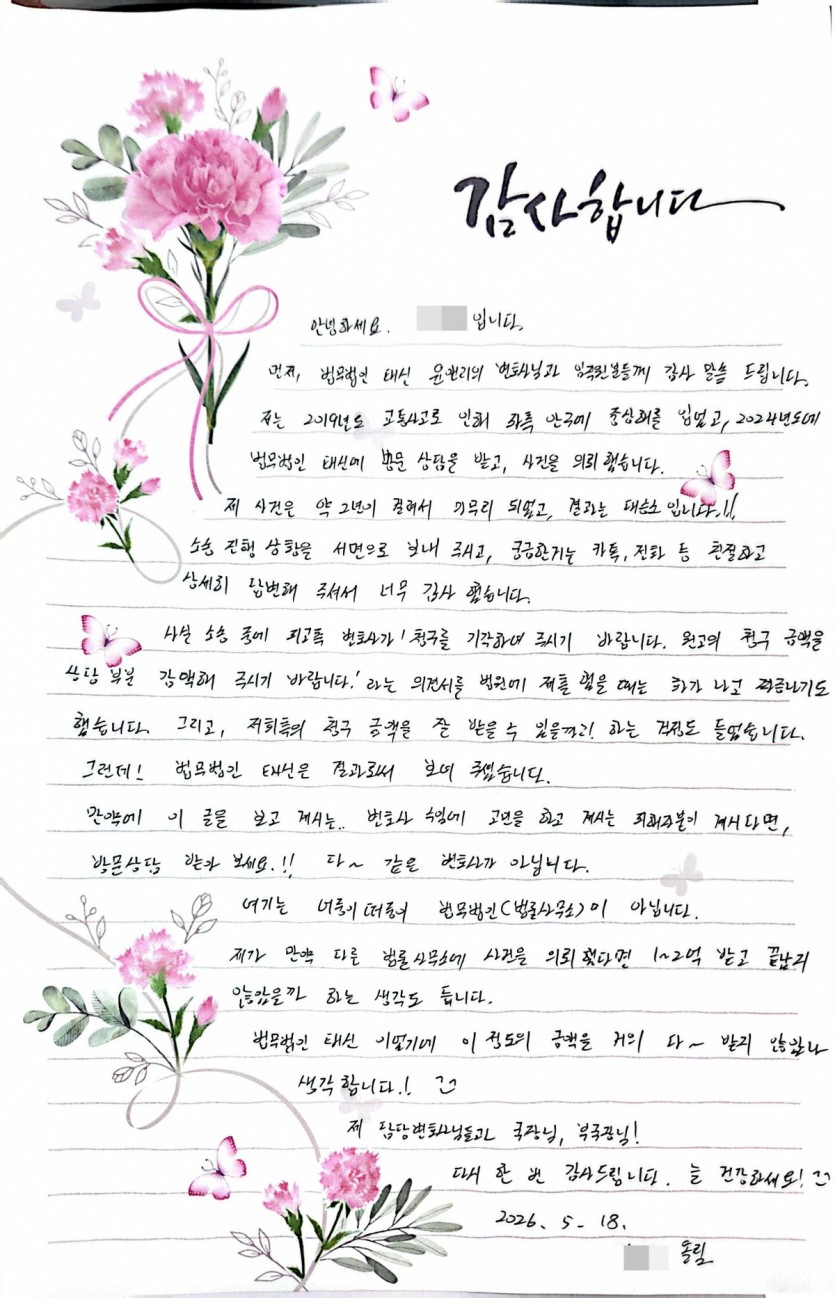 감사합니다
안녕하세요. 입니다.
먼저, 법무법인 태신 윤앤리의 변호사님과 임직원분들께 감사 말씀 드립니다.
저는 2019년도 교통사고로 인해 좌측 안구에 중상해를 입었고, 2024년도에
법무법인 태신에 방문 상담을 받고, 사건을 의뢰 했습니다.
제 사건은 약 2년이 걸려서 마무리 되었고, 결과는 대승소 입니다.!!
소송 진행 상황을 서면으로 보내 주시고, 궁금한거는 카톡, 전화 등 친절하고
상세히 답변해 주셔서 너무 감사 했습니다.
사실 소송 중에 피고측 변호사가 '청구를 기각하여 주시기 바랍니다. 원고의 청구 금액을
상당 부분 감액해 주시기 바랍니다.' 라는 의견서를 법원에 제출 했을 때는 화가 나고 짜증나기도
했습니다. 그리고, 저희측의 청구 금액을 잘 받을 수 있을까? 하는 걱정도 들었습니다.
그런데! 법무법인 태신은 결과로써 보여 주셨습니다.
만약에 이 글을 보고 계시는.. 변호사 수임에 고민을 하고 계시는 피해자분이 계시다면,
방문상담 받아 보세요.!! 다~ 같은 변호사가 아닙니다.
여기는 어중이떠중이 법무법인(법률사무소)이 아닙니다.
제가 만약 다른 법률사무소에 사건을 의뢰했다면 1~2억 받고 끝났지
않았을까 하는 생각도 듭니다.
법무법인 태신 이었기에 이 정도의 금액을 거의 다~ 받지 않았나
생각합니다.!
제 담당변호사님들과 국장님, 부국장님!
다시 한 번 감사드립니다. 늘 건강하세요!
2026. 5. 18.
올림